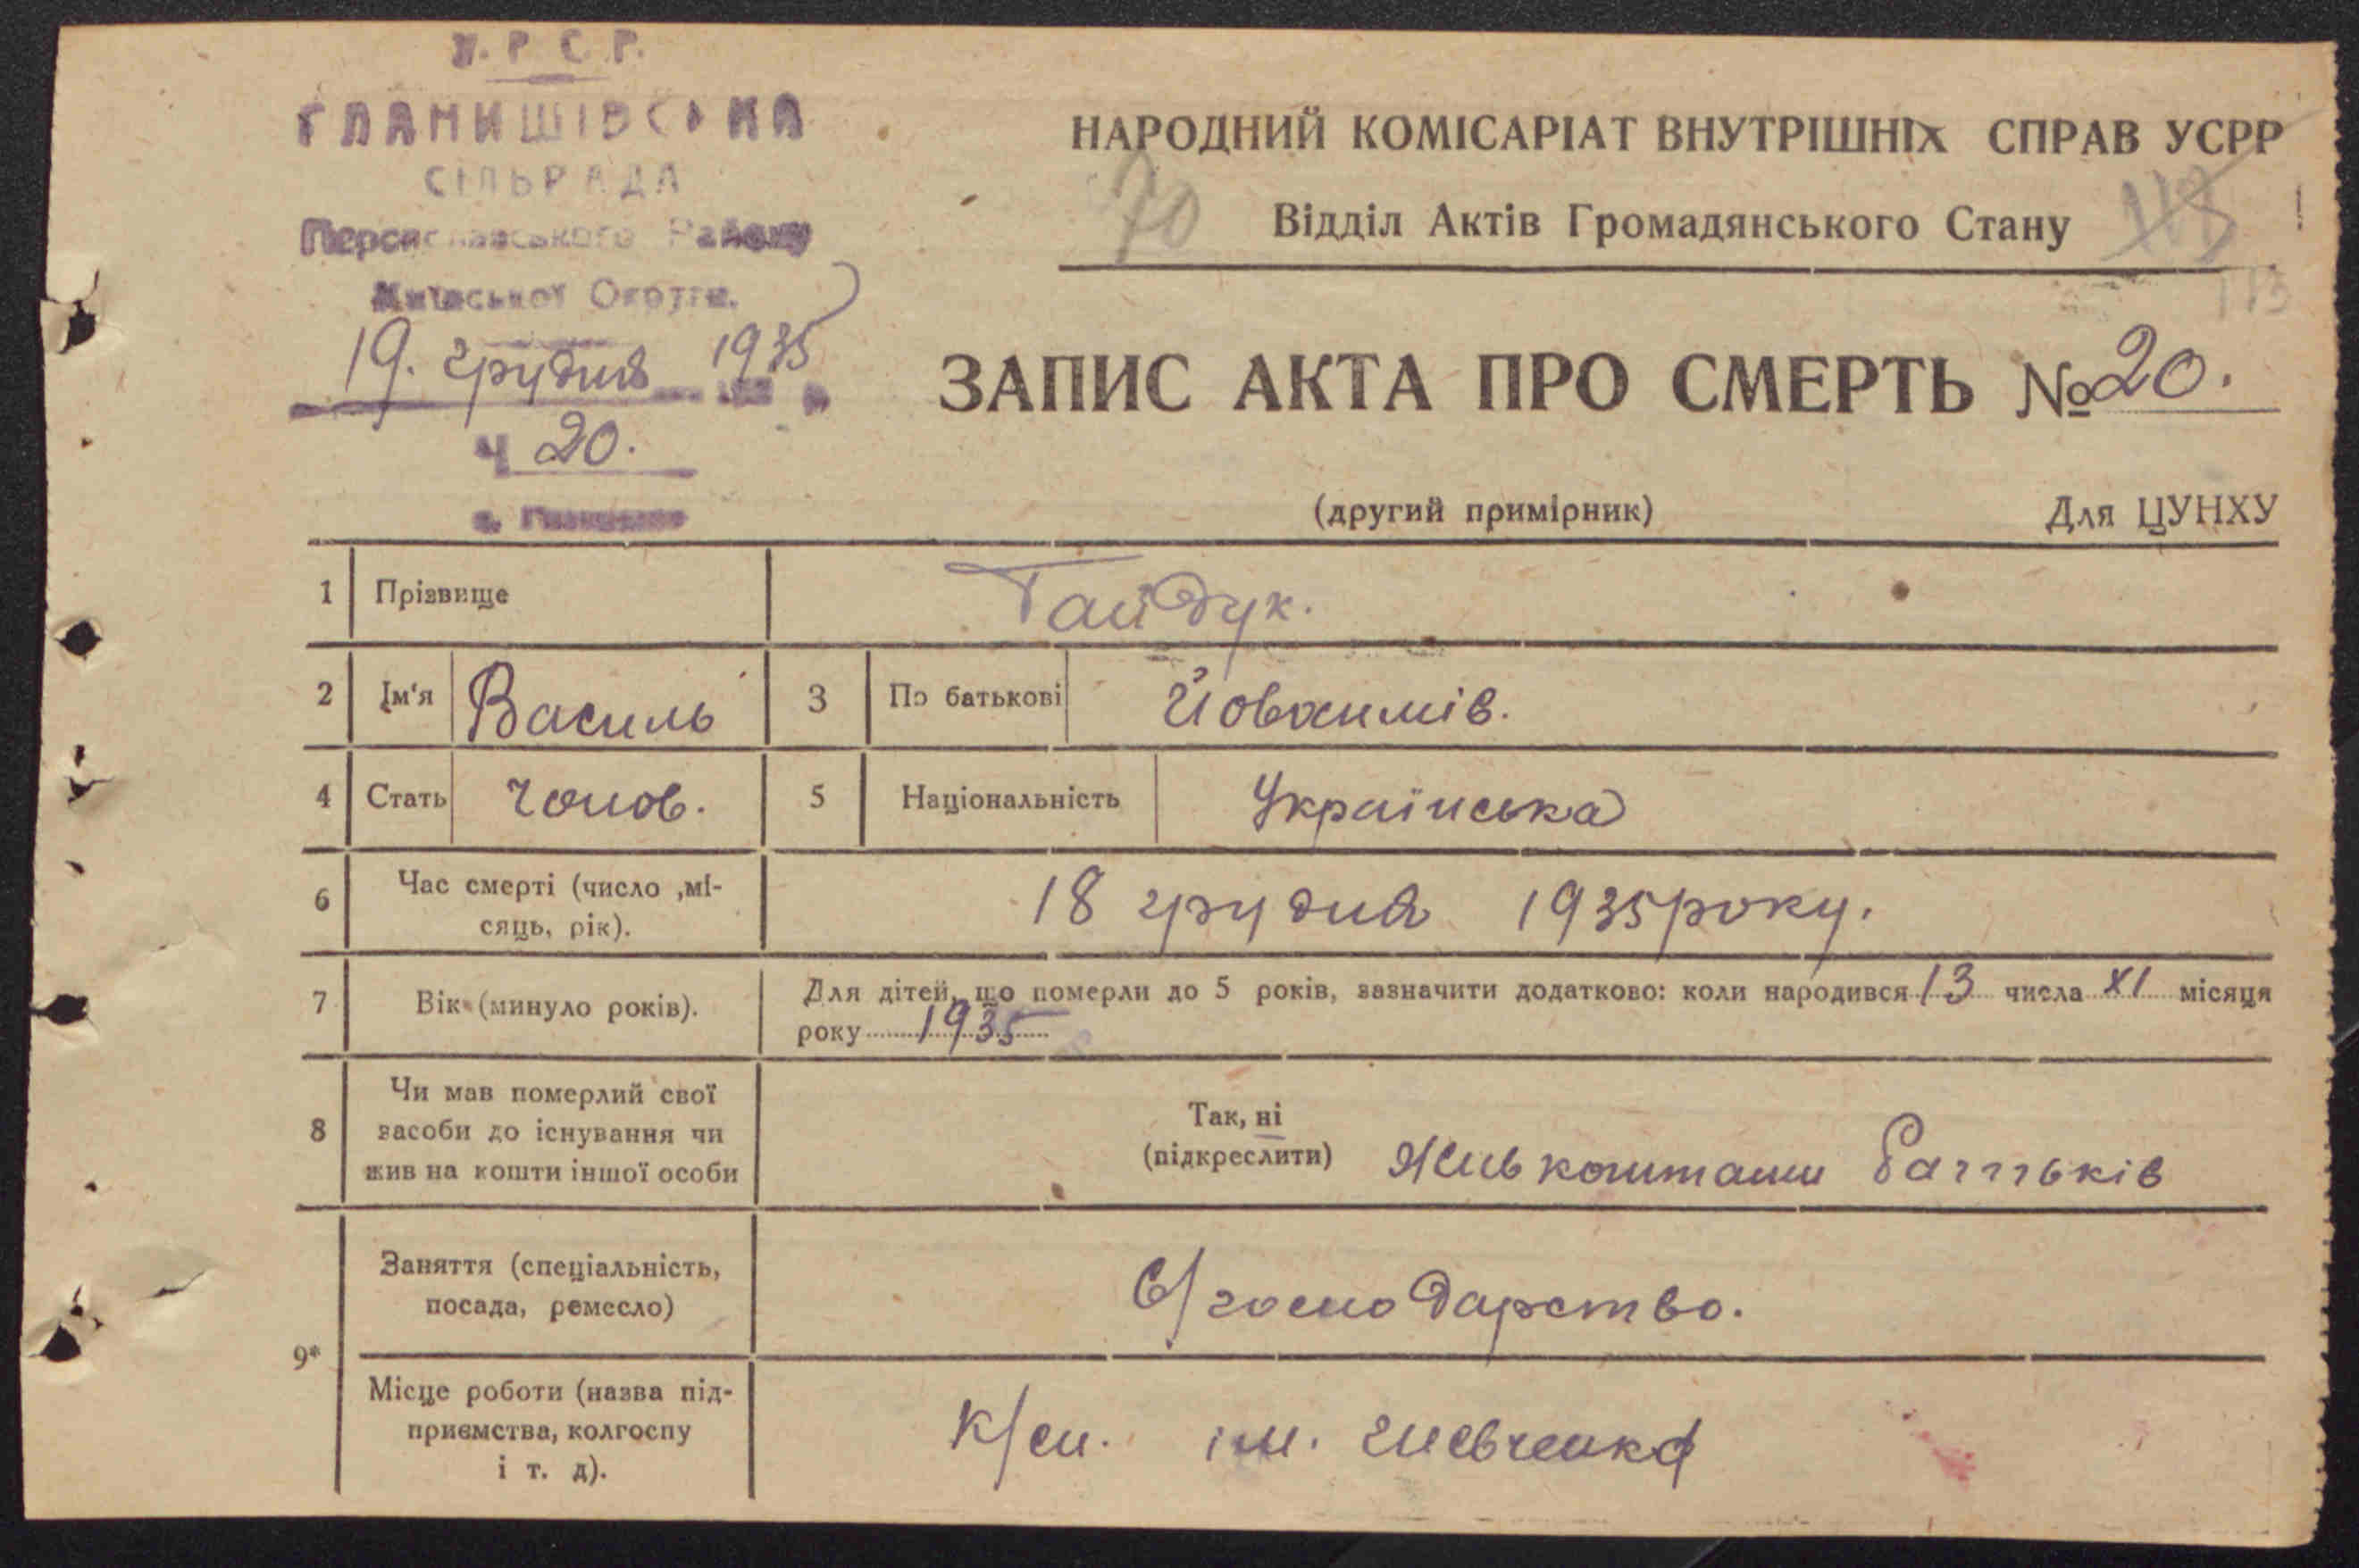 У.Р.С.Р.
ГЛАНИШІВСЬКА
СІЛЬРАДА
Переяславського Району
Київської Округи.
19. грудня 1935
Ч 20.
НАРОДНИЙ КОМІСАРІАТ ВНУТРІШНІХ СПРАВ УСРР
70
Відділ Актів Громадянського Стану
113
ЗАПИС АКТА ПРО СМЕРТЬ № 20.
(другий примірник) Для ЦУНХУ
1 Прізвище Гайдук.
2 Ім'я Василь 3 По батькові Йовхимів.
4 Стать Чолов. 5 Національність Українська
6 Час смерті (число ,мі-
сяць, рік). 18 грудня 1935 року.
7 Вік (минуло років). Для дітей, що померли до 5 років, зазначити додатково: коли народився 13 числа XI місяця
року 1935
8 Чи мав померлий свої
засоби до існування чи
жив на кошти іншої особи
Так, ні
(підкреслити) Жив коштами батьків
9*
Заняття (спеціальність,
посада, ремесло) С/господарство.
Місце роботи (назва під-
приємства, колгоспу
і т. д).
К/сп. ім. Шевченка